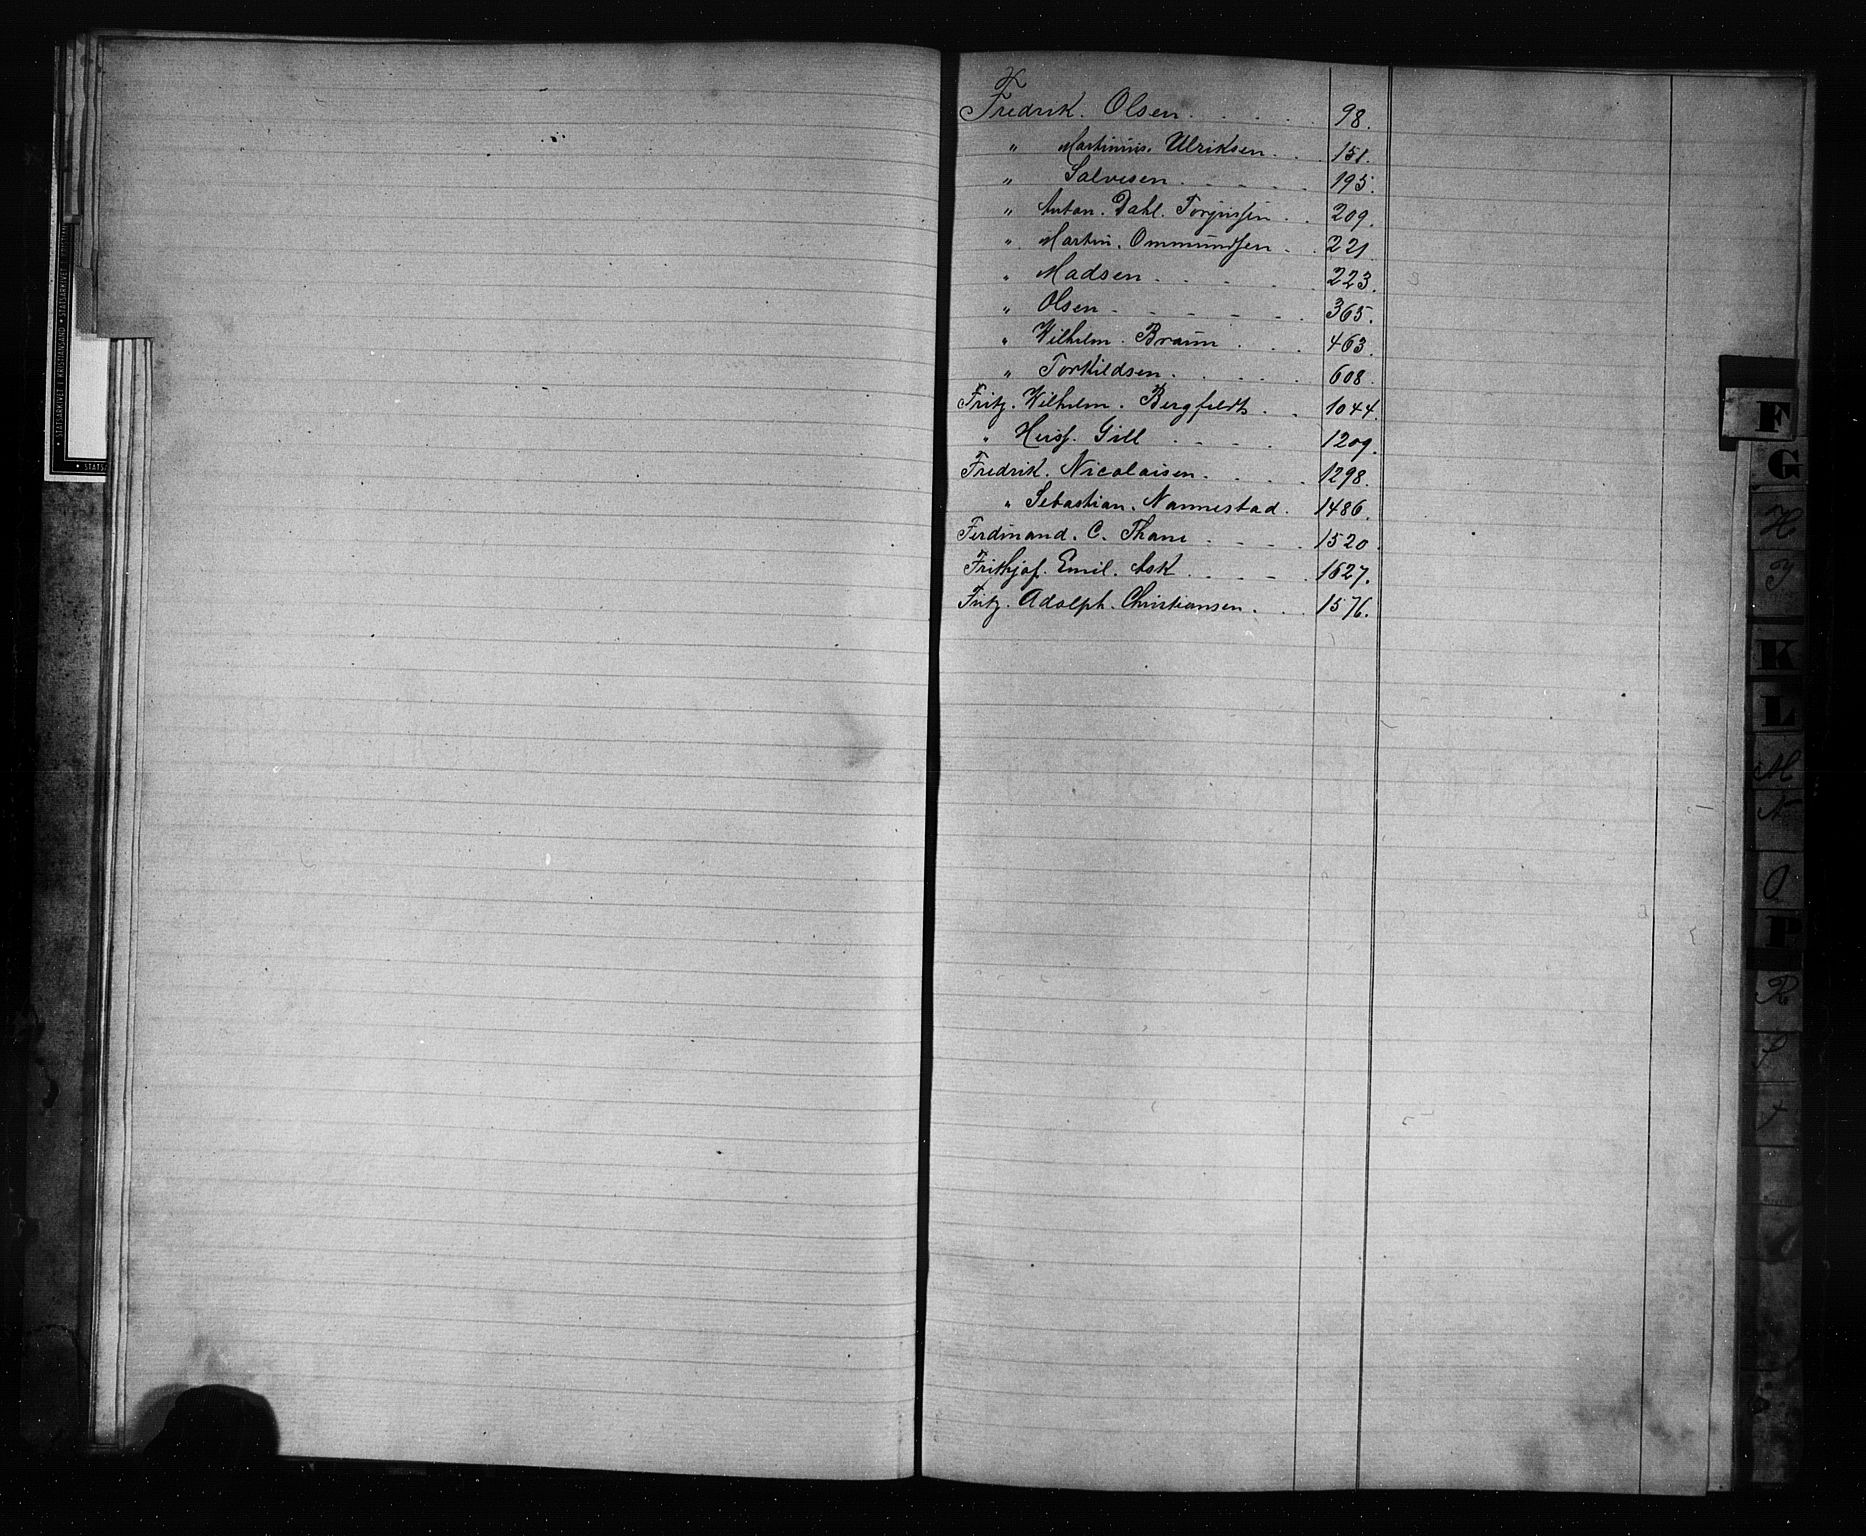 Fredrik. Olsen. 98.
" Martinius. Ulriksen. 151.
" Salvesen. 195.
" Anton. Dahl. Torjussen. 209.
" Martin. Ommundsen. 221
" Madsen. 223.
" Olsen. 365.
" Wilhelm. Braun. 463.
" Torkildsen. 608.
Fritz. Wilhelm. Bergfeldt. 1044.
" Gill 1209.
Fredrik. Nicolaisen. 1298.
" Sebastian. Nannestad. 1486.
Ferdinand. C. Thane 1520.
Frithjof. Emil. Ask 1627.
Fritz. Adolph. Christiansen. 1576.
F
G
H
I
K
L
M
N
O
P
R
S
T
• STATSARKIVET I KRISTIANSAND • STATSARKIVET I KRISTIAN
• STATSA